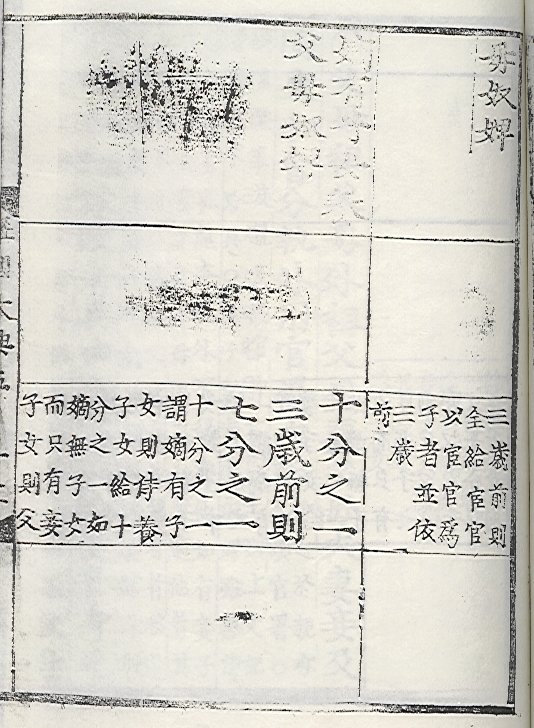 母奴婢
有子女養
父母奴婢
三歲前則
全給宦官
以宦官爲
子者並依
三歲
前
十分之一
三歲前則
七分之一
十分之一
謂嫡有子
女則侍養
子女給十
分之一如
嫡無子女
而只有妾
子女則父
國大典